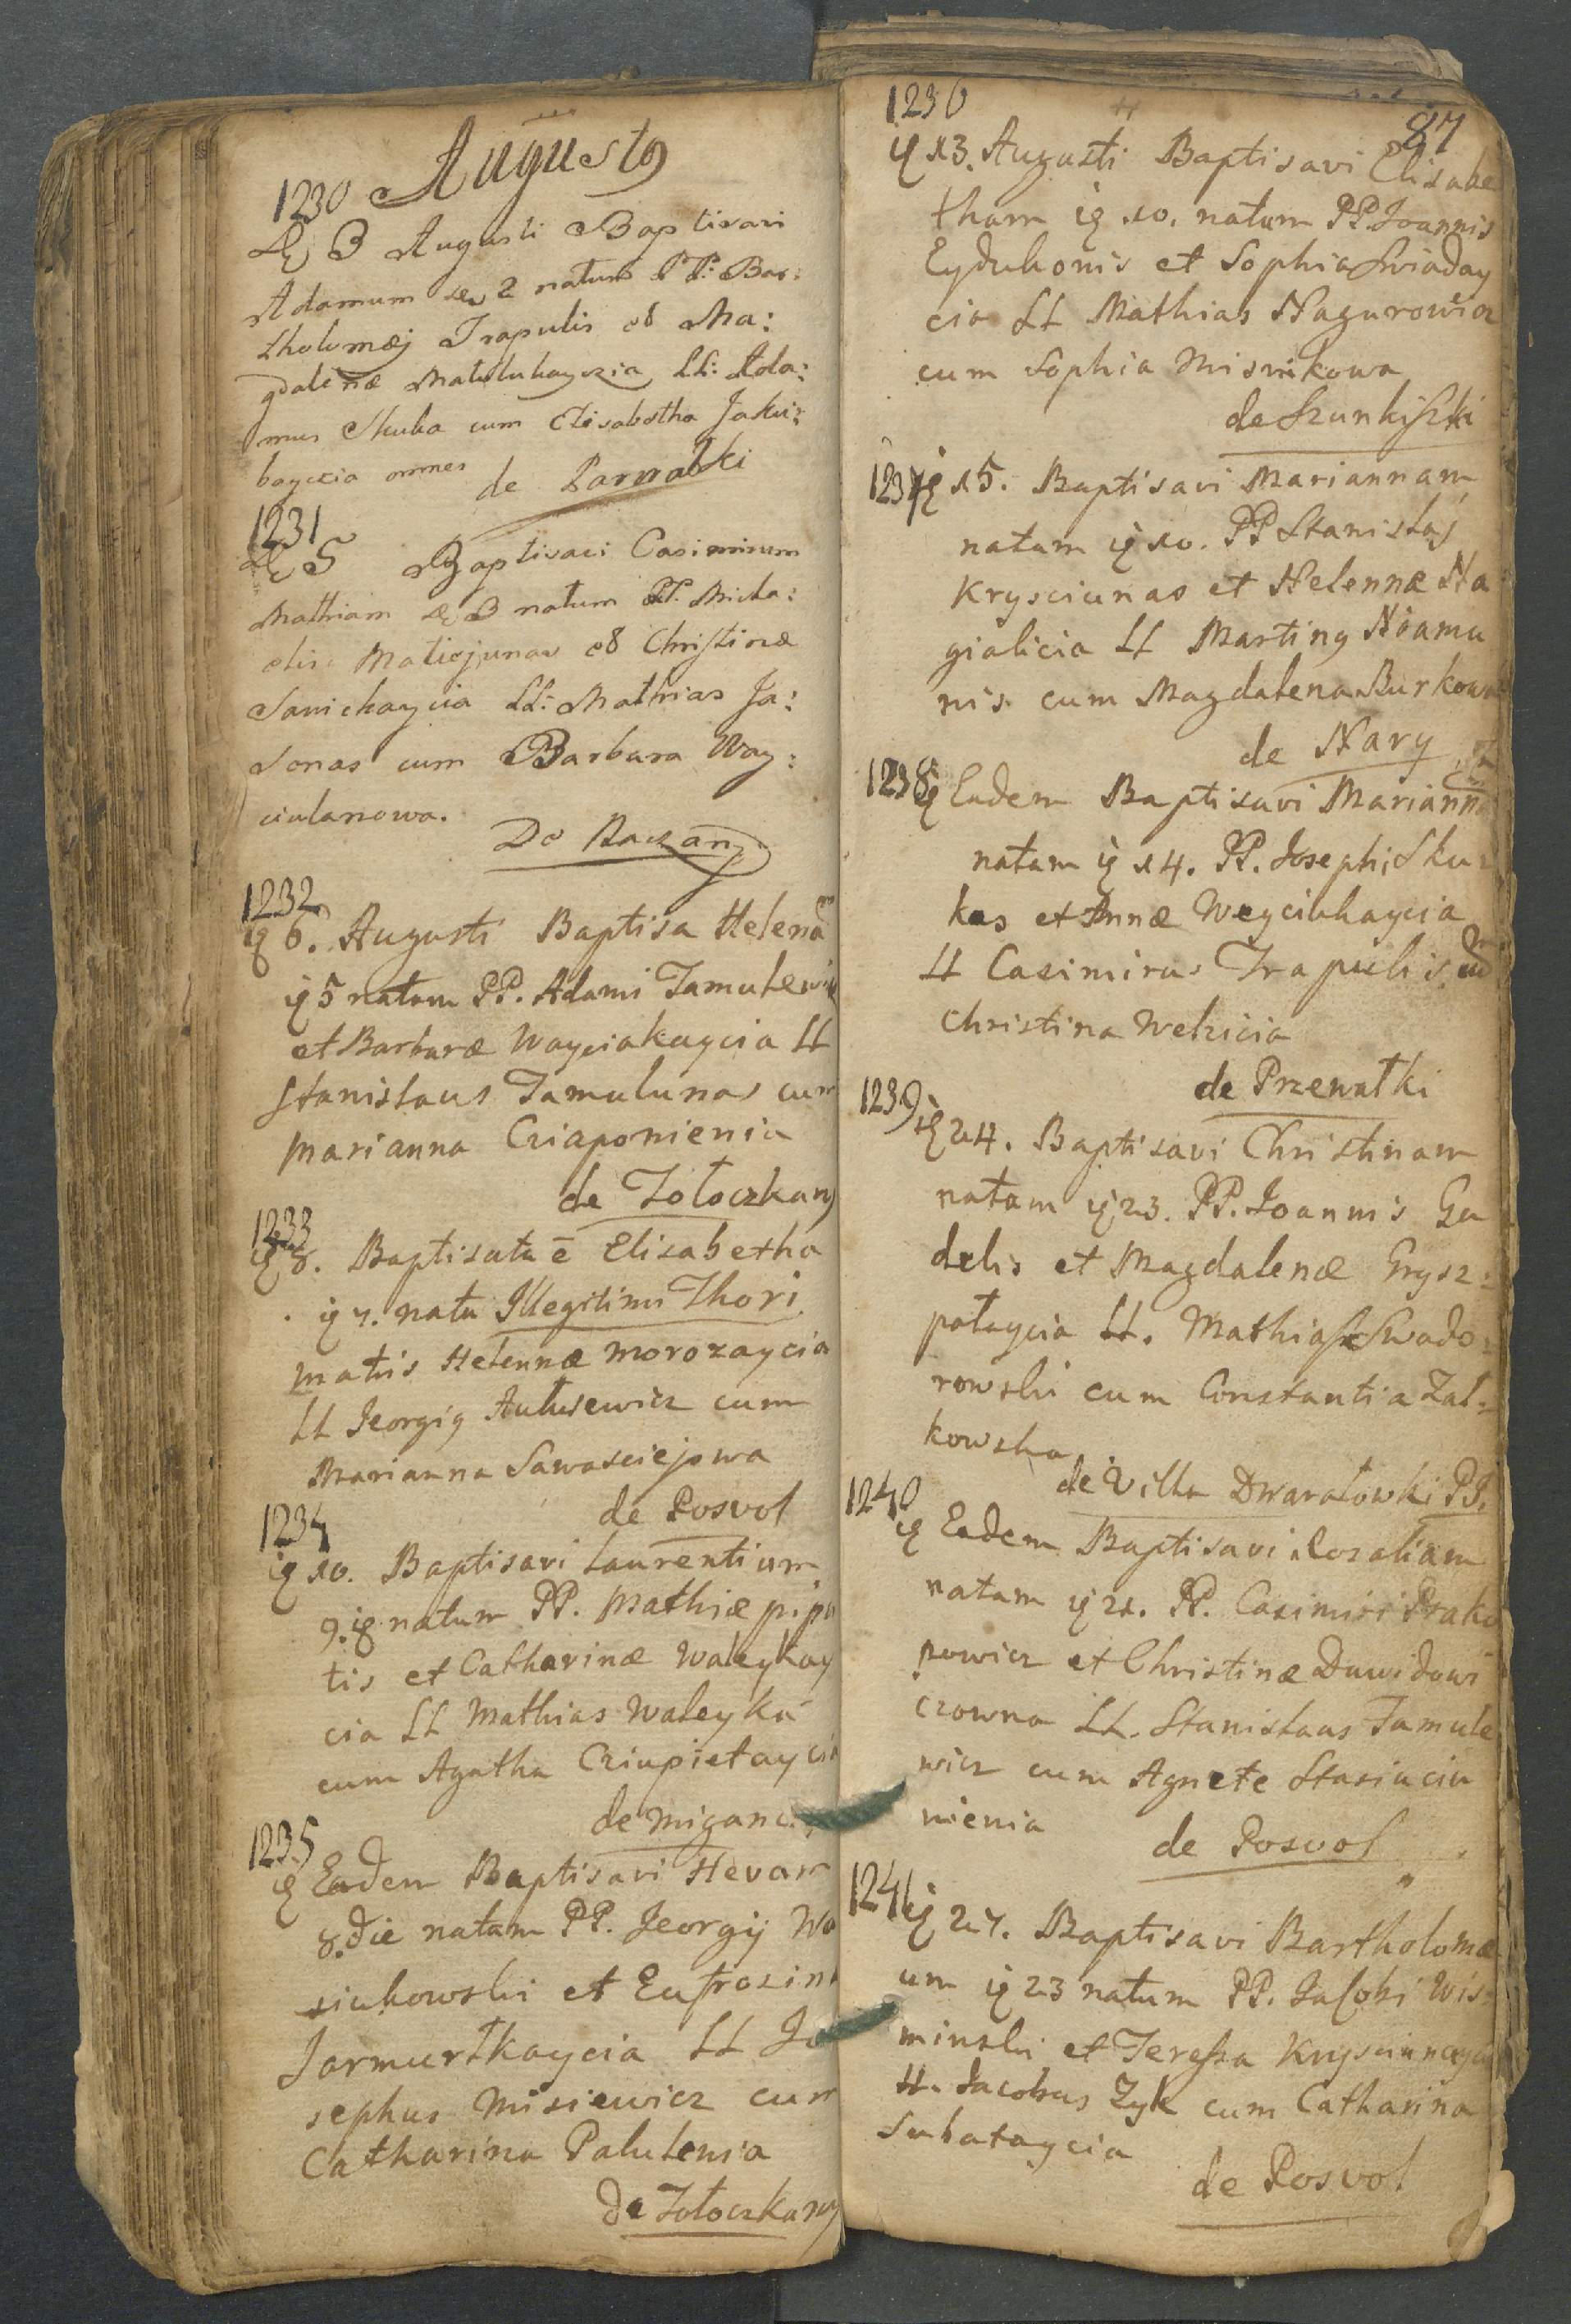 Augusty
1230
3 Augusti Baptisavi
Adamum 2 natum PP: Bar:
tholomæj Trapulis et Ma:
gdalenæ LL: Ada:
mus Skuba cum Elisabetha Jaku:
baycia omnes
de Parwalki
1231
5 Baptisavi Casimirum
Mathiam 3 natum PP. Micha:
elis Matiejunas et Christinæ
Janichaycia LL: Mathias Ja:
sonas cum Barbara Way:
ciulanowa.
De Raczany
1232
6. Augusti Baptisa Helenā
5 natam PP. Adami Tamulewic
et Barbaræ Wayciakaycia LL
Stanislaus Tamulunas cum
Marianna Cziaponienia
de Tołoczkany
1233
8. Baptisata ē Elisabetha
7. nata Illegitimi Thori
matris Helennæ Morozaycia
LL Jeorgiy Autusewicz cum
Marianna Sawasciejowa
de Posvol
1234
10. Baptisavi Laurentium
9. natum PP. Mathiæ pipi
tis et Catharinæ Waleykay
cia LL Mathias Waleyka
cum Agatha Criupietaycia
de Migance
1235
Eadem Baptisavi Hevam
8. die natam PP. Jeorgij Wa
siukowski et Eufrosina
Jarmurtkaycia LL Jo
sephus Misiewicz cum
Catharina Palulenia
de Tołoczkany
1236
87
13. Augusti Baptisavi Elisabe
tham 10. natam PP. Joannis
Eydukonis et Sophia Swiaday
cia LL Mathias Nagurowicz
cum Sophia Misnikowa
de Szunkiszki
1237
15. Baptisavi Mariannam
natam 10. PP Stanislaj
Krysciunas et Helennæ Na
gialicia LL Martiny Noamu
nis cum Magdalena Burkowa
de Nary
1238
Eadem Baptisavi Marianna
natam 14. PP. Josephi Sku
kas et Annæ Weyciukaycia
LL Casimirus Trapulis cū
Christina Welzicia
de Przewałki
1239
24. Baptisavi Christinam
natam 23. PP. Joannis Gu
delis et Magdalenæ Grysz:
pataycia LL. Mathias Swado:
rowski cum Constantia Zal:
kowska
de Villa Dwaratowki PP.
1240
Eadem Baptisavi Rozaliam
natam 21. PP. Casimiri Proko
powicz et Christinæ Dawidowi
czowna LL. Stanislaus Tamule
wicz cum Agnete Stasiuciu
nienia
de Posvol
1241
27. Baptisavi Bartholomæ
um 23 natum PP. Jacobi Wis
minski et Teressa Krysciunaycia
LL. Jacobus Zyk cum Catharina
Subataycia
de Posvol